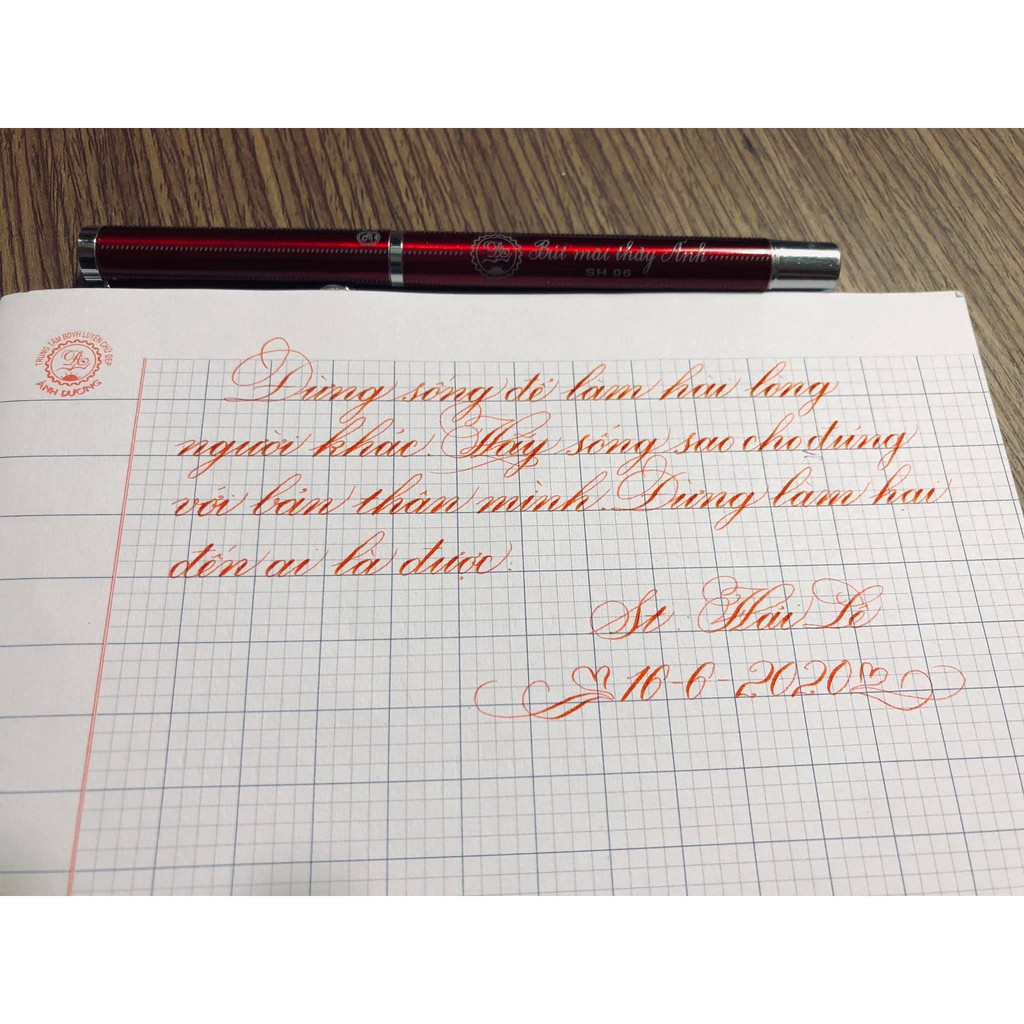 Bút mài thầy Ánh
SH 06
TRUNG TÂM BDVH LUYỆN CHỮ ĐẸP
ÁNH DƯƠNG
Đừng sống để làm hài lòng
người khác. Hãy sống sao cho đúng
với bản thân mình. Đừng làm hại
đến ai là được.
St: Hải Lê
16-6-2020